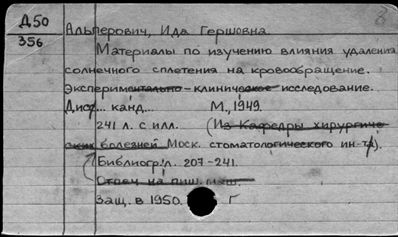 Д50
356
Альперович, Ида Гершовна.
Материалы по изучению влияния удаления
солнечного сплетения на кровообращение.
Экспериментально-клиническое исследование.
Дисс... канд... М., 1949.
241 л. с илл. (Из Кафедры хирургиче-
ских болезней Моск. стоматологического ин-та).
Библиогр: л. 207-241.
Отпеч на пиш. маш.
Защ. в 1950. Г